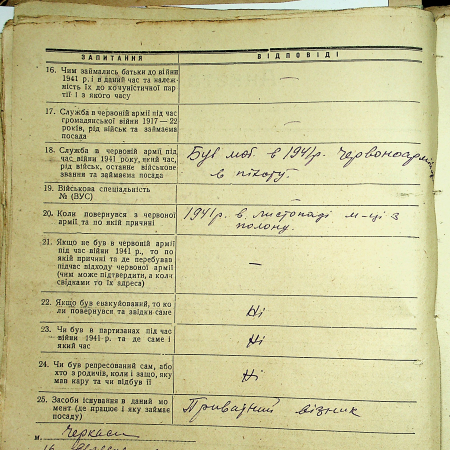 ЗАПИТАННЯ ВІДПОВІДІ
16. Чим займались батьки до війни
1941 р. і в даний час та належ-
ність їх до комуністичної пар-
тії і з якого часу
—
17. Служба в червоній армії під час
громадянської війни 1917 — 22
років, рід військ та займаєма
посада
—
18. Служба в червоній армії під
час війни 1941 року, який час,
рід військ, останнє військове
звання та займаєма посада
Був моб. в 1941 р. Червоноармієць
в піхоту
19. Військова спеціальність
№ (ВУС)
20. Коли повернувся з червоної
армії та по якій причині
1941 р. в листопаді м-ці з
полону.
21. Якщо не був в червоній армії
під час війни 1941 р., то по
якій причині та де перебував
підчас відходу червоної армії
(чим може підтвердити, а коли
свідками то їх адреса)
—
22. Якщо був евакуйований, то ко-
ли повернувся та звідки саме
Ні
23. Чи був в партизанах під час
війни 1941 р. та де саме і
який час
Ні
24. Чи був репресований сам, або
хто з родичів, коли і защо, яку
мав кару та чи відбув її
Ні
25. Засоби існування в даний мо-
мент (де працює і яку займає
посаду)
Приватний візник
м. Черкаси
16